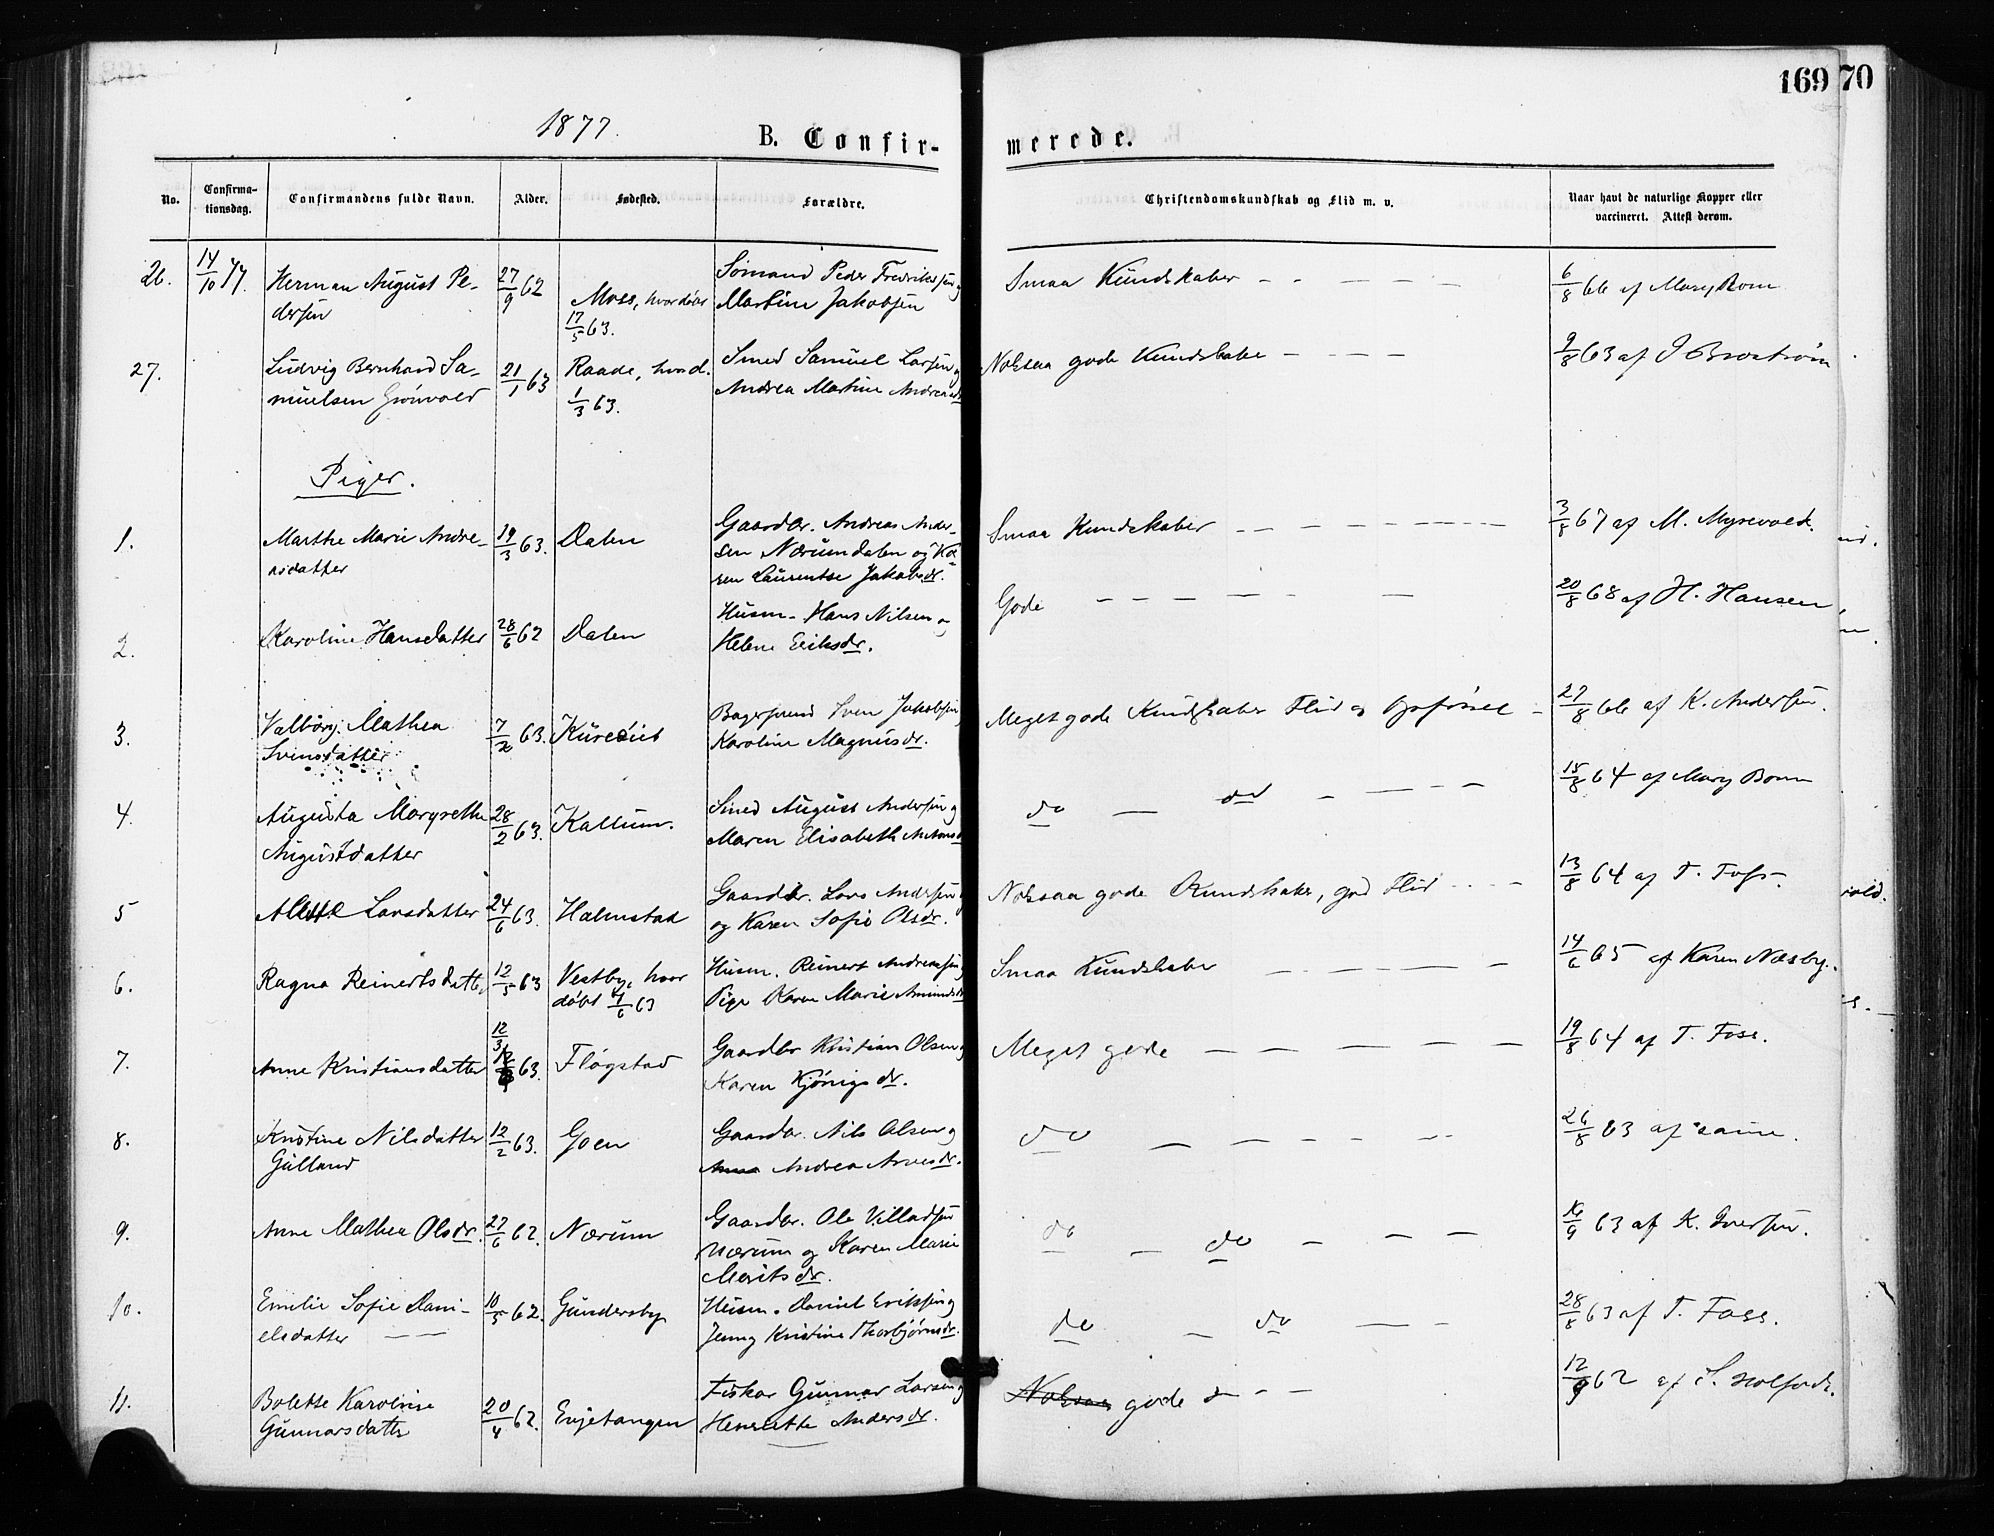 169
70
1877.
B. Confir-
merede.
No.
Confirma-
tionsdag.
Confirmandens fulde Navn.
Alder.
Fødested.
Forældre.
Christendomskundskab og Flid m. v.
Naar havt de naturlige Kopper eller
vaccineret. Attest derom.
26.
14/10 77.
Herman August Pe-
dersen
27/9 62
Moss, hvor døbt
17/5 63.
Sömand Peder Fredriksen og
Martine Jakobsen
Smaa Kundskaber - - - - -
6/8 66 af Mary Bom
27.
Ludvig Bernhard Sa-
muelsen Grönvold
21/1 63
Raade, hvor d.
1/3 63.
Smed Samuel Larsen og
Andrea Martine Andreasdr
Noksaa gode Kundskaber - - - -
9/8 63 af J Broström
Piger.
1.
Marthe Marie Andre-
asdatter
19/3 63.
Dalen
Gaardbr. Andreas Ander-
sen Nærumdalen og Ka-
ren Laurentse Jakobsdr.
Smaa Kundskaber - - - - - - - -
3/8 67 af M. Mysevold.
2.
Karoline Hansdatter
28/6 62
Dalen
Husm. Hans Nilsen og
Helene Eriksdr.
Gode - - - - - -
20/8 68 af H. Hansen,
3.
Valborg Mathea
Svensdatter
7/2 63.
Kurediet
Bagersvend Sven Jakobsen,
Karoline Magnusdr.
Meget gode Kundskaber Flid og Opførsel -
27/8 66 af K. Andersen.
4.
Augusta Margrethe
Augustdatter
28/2 63.
Kallum.
Smed August Andersen og
Maren Elisabeth Antonsdr
do - do - - - -
15/8 64 af Mary Bom
5
Alette Larsdatter
24/6 63.
Halmstad
Gaardbr. Lars Andersen
og Karen Sofie Olsdr.
Noksaa gode Kundskaber, god Flid - - - -
13/8 64 af T. Foss.
6.
Ragna Reinertsdatter
12/5 63
Vestby, hvor
døbt 7/6 63
Husm. Reinert Andreassen og
Pige Karen Marie Amundsdr
Smaa Kundskaber - - - - -
14/6 65 af Karen Næsby.
7.
Anne Kristiansdatter
12/3
63.
Flögstad
Gaardbr Kristian Olsen og
Karen Kjönigsdr.
Meget gode - - - - -
19/8 64 af T. Foss.
8.
Kristine Nilsdatter
Gulland
12/2 63.
Goen
Gaardbr. Nils Olsen og
Anna Andrea Arnesdr.
do - - - - -
26/8 63 af samme.
9.
Anne Mathea Olsdr.
27/6 62.
Nærum
Gaardbr. Ole Villadsen
Nærum og Karen Marie
Moritsdr.
do - do - - -
63 af K. Iversen.
10.
Emilie Sofie Dani-
elsdatter - -
10/5 62.
Gundersby
Husm. Daniel Eriksen og
Jenny Kristine Thorbjørnsdr.
do - do - -
28/8 63 af T. Foss.
11.
Bolette Karoline
Gunnarsdatter
20/4 62.
Evjetangen
Fisker Gunnar Larsen og
Henriette Andersdr.
Noksaa gode - - -
12/9 62 af